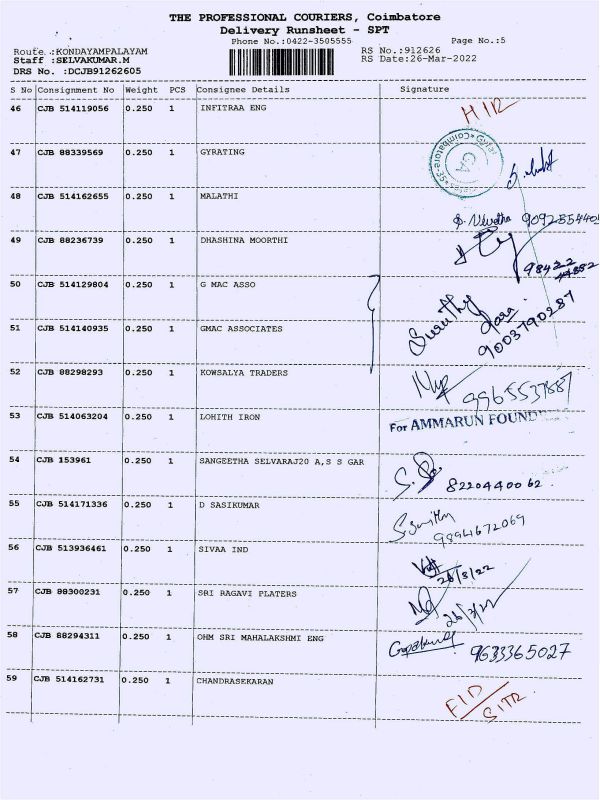 THE PROFESSIONAL COURIERS, Coimbatore
Delivery Runsheet - SPT
Phone No.:0422-3505555 Page No.:5
Route .:KONDAYAMPALAYAM RS No.:912626
Staff :SELVAKUMAR.M RS Date:26-Mar-2022
DRS No. :DCJB91262605
S No Consignment No Weight PCS Consignee Details Signature
46 CJB 514119056 0.250 1 INFITRAA ENG
47 CJB 88339569 0.250 1 GYRATING
48 CJB 514162655 0.250 1 MALATHI
49 CJB 88236739 0.250 1 DHASHINA MOORTHI
50 CJB 514129804 0.250 1 G MAC ASSO
51 CJB 514140935 0.250 1 GMAC ASSOCIATES
9003790287
52 CJB 88298293 0.250 1 KOWSALYA TRADERS
53 CJB 514063204 0.250 1 LOHITH IRON
For AMMARUN
54 CJB 153961 0.250 1 SANGEETHA SELVARAJ20 A,S S GAR
8220440062
55 CJB 514171336 0.250 1 D SASIKUMAR
9894672069
56 CJB 513936461 0.250 1 SIVAA IND
26/3/22
57 CJB 88300231 0.250 1 SRI RAGAVI PLATERS
26/3/22
58 CJB 88294311 0.250 1 OHM SRI MAHALAKSHMI ENG
9633365027
59 CJB 514162731 0.250 1 CHANDRASEKARAN